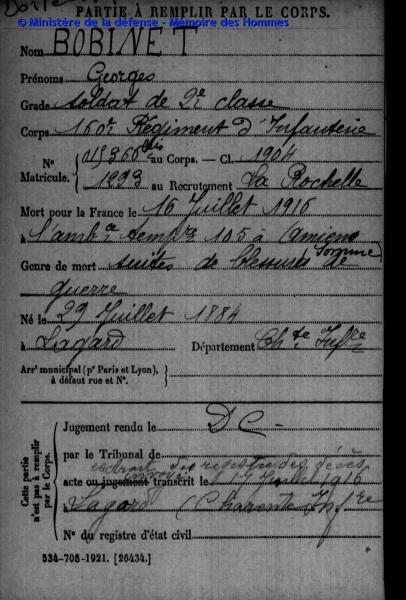 PARTIE À REMPLIR PAR LE CORPS.
© Ministère de la défense - Mémoire des Hommes
Nom BOBINET
Prénoms Georges
Grade soldat de 2e classe
Corps 160e Régiment d'Infanterie
N° Matricule. 015360 bis au Corps. — Cl. 1904
1293 au Recrutement La Rochelle
Mort pour la France le 16 Juillet 1916
à l'ambce temp 105 à Amiens (Somme)
Genre de mort suites de blessures de
guerre
Né le 29 Juillet 1884
à Lagard Département Chte Infre
Arrt municipal (pr Paris et Lyon), à défaut rue et N°.
Cette partie n'est pas à remplir par le Corps.
Jugement rendu le DC-
par le Tribunal de
extrait des registres des décès
acte ou jugement transcrit le 17 Juillet 1916
à Lagard (Charente Infre
N° du registre d'état civil
534-708-1921. [26434.]